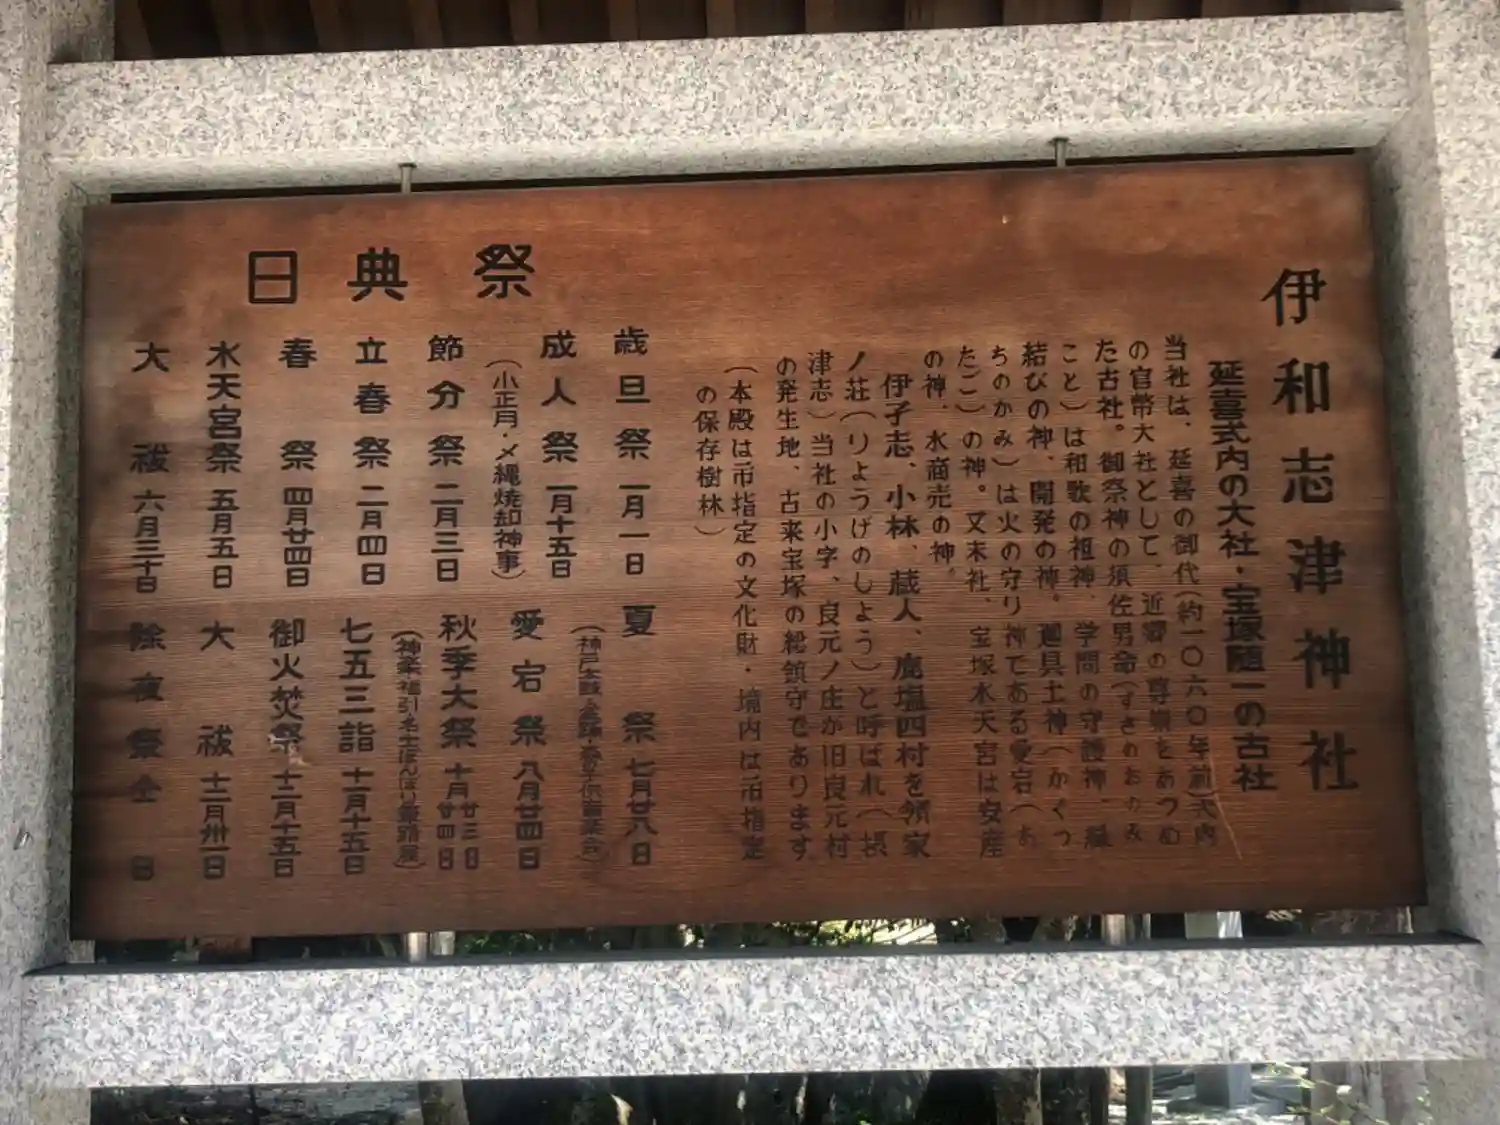 伊和志津神社
延喜式内の大社・宝塚随一の古社
当社は、延喜の御代(約一〇六〇年前)式内
の官幣大社として、近郷の尊崇をあつめ
た古社。御祭神の須佐男命(すさのおのみ
こと)は和歌の祖神、学問の守護神、縁
結びの神、開発の神。迦具土神(かぐつ
ちのかみ)は火の守り神である愛宕(あ
たご)の神。又末社、宝塚水天宮は安産
の神、水商売の神。
伊孑志、小林、蔵人、鹿塩四村を領家
ノ荘(りようげのしよう)と呼ばれ(摂
津志)当社の小字、良元ノ庄が旧良元村
の発生地、古来宝塚の総鎮守であります
(本殿は市指定の文化財・境内は市指定
の保存樹林)
祭典日
歳旦祭 一月一日
成人祭 一月十五日
(小正月・〆縄焼却神事)
節分祭 二月三日
立春祭 二月四日
春祭 四月廿四日
水天宮祭 五月五日
大祓 六月三十日
夏祭 七月廿八日
愛宕祭 八月廿四日
秋季大祭 十月廿三日廿四日
七五三詣 十一月十五日
御火焚祭 十二月十五日
大祓 十二月卅一日
除夜祭 全日